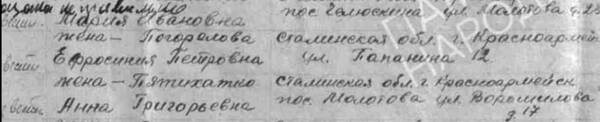 Мария Ивановна пос. Челюскина ул. Молотова д. 23
жена – Погорелова Сталинская обл. г. Красноармейск
Ефросиния Петровна ул. Папанина 12
жена – Пятихатко Сталинская обл. г. Красноармейск
Анна Григорьевна пос. Молотова ул. Ворошилова
д. 17